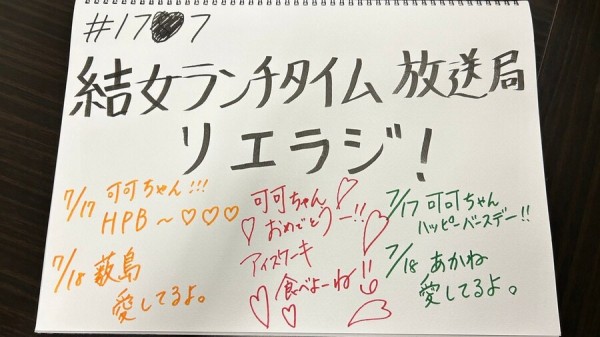 #17 7
結女ランチタイム放送局
リエラジ!
7/17 可可ちゃん!!!
HPB~♡♡♡
7/18 薮島
愛してるよ。
可可ちゃん♡
♡おめでとうー!!
アイスケーキ
食べよーね!!
♡♡
7/17 可可ちゃん
ハッピーバースデー!!
7/18 あかね
愛してるよ。